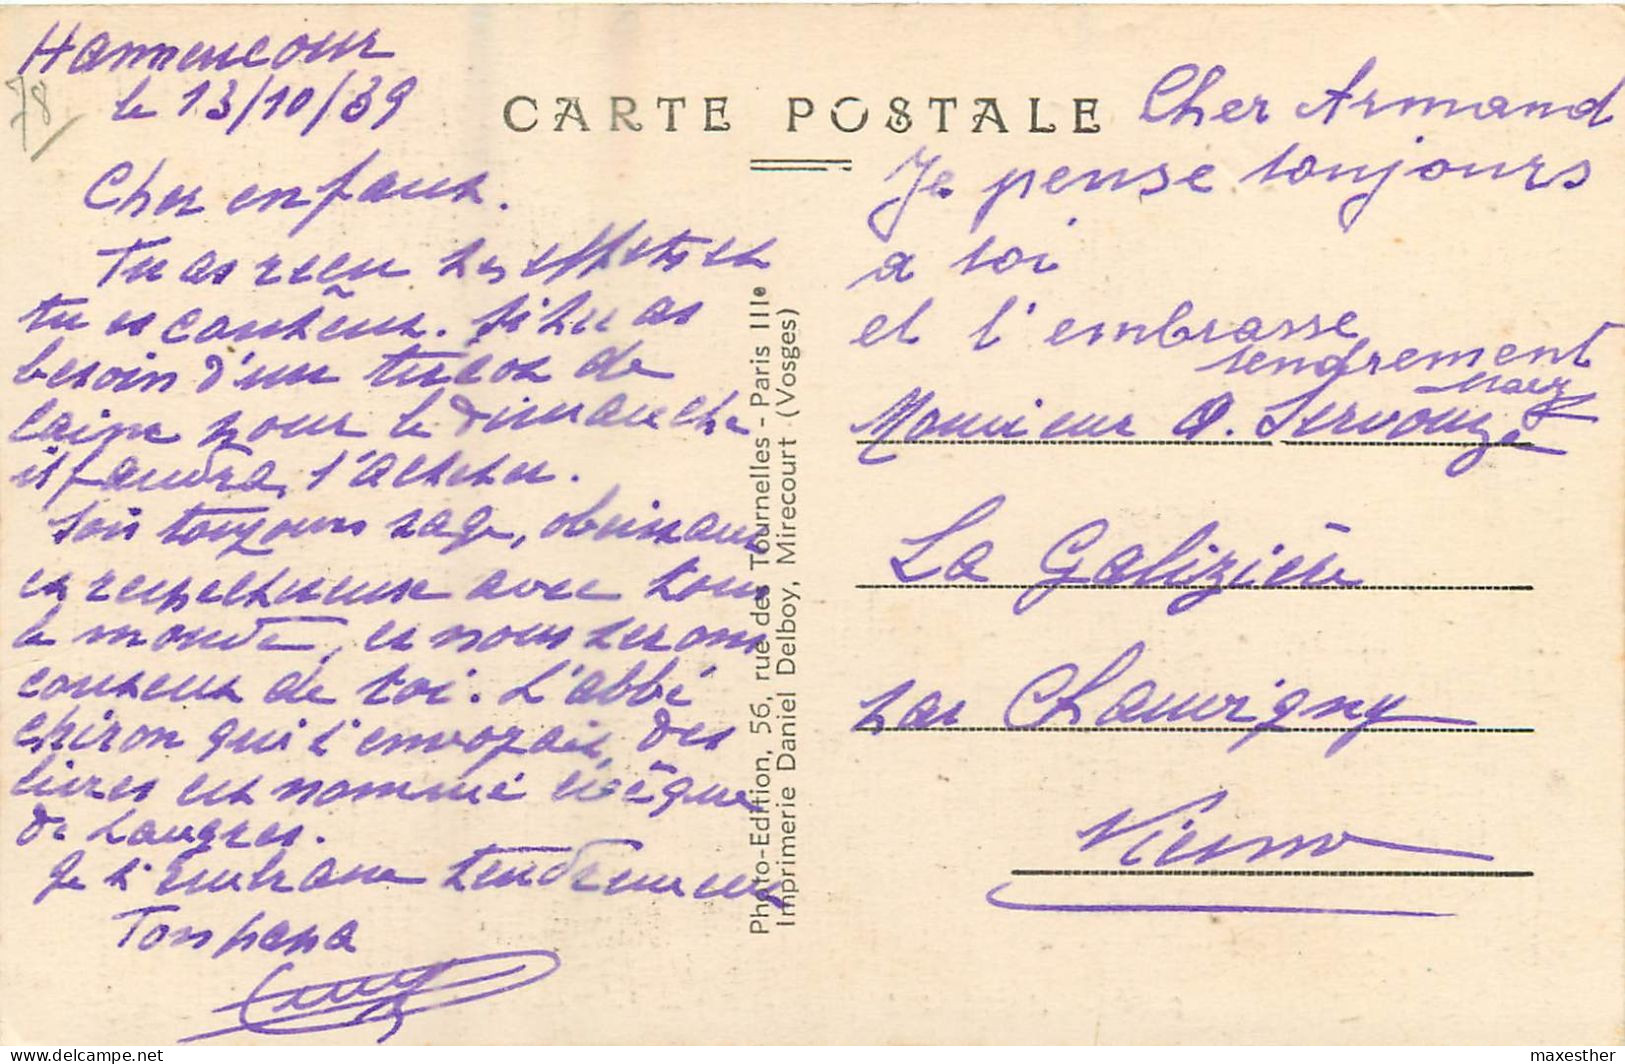 Hannencour
le 13/10/39
78
CARTE POSTALE
Cher enfant.
Tu as reçu les effets et
tu es content. Si tu as
besoin d'un tricot de
laine pour le dimanche
il faudra l'acheter.
Sois toujours sage, obeissant
et respectueux avec tout
le monde, et nous serons
content de toi. L'abbé
chiron qui t'envoyait des
livres est nommé évêque
de Langres.
Je t'embrasse tendrement
Ton papa
Photo-Edition, 56, rue des Tournelles - Paris IIIe
Imprimerie Daniel Delboy, Mirecourt (Vosges)
Cher Armand
Je pense toujours
a toi
et t'embrasse
tendrement
Monsieur A. Servouze
La Galizière
par Chauvigny
Vienne
maxesther